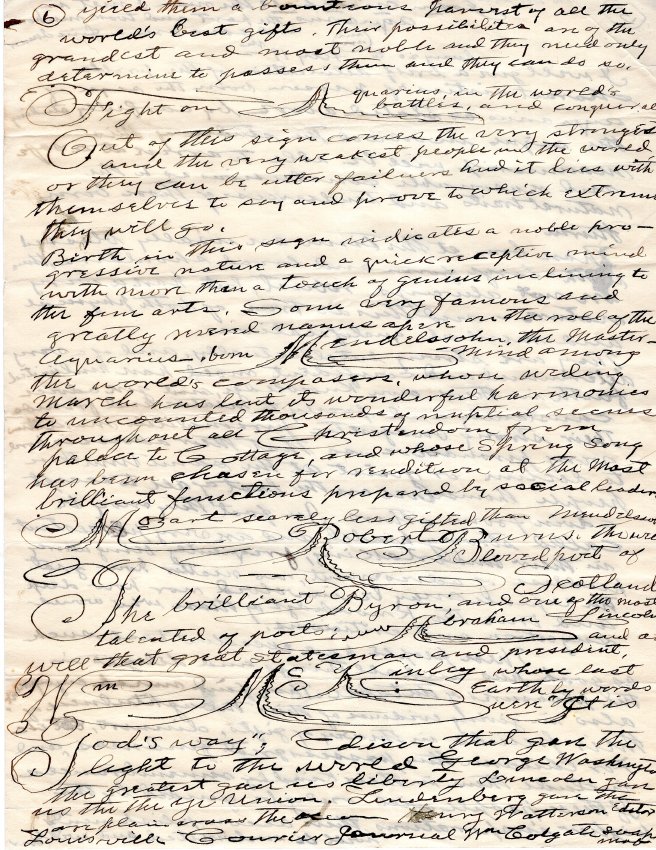 6 yield them a bounteous harvest of all the
world's best gifts. Their possibilities are of the
grandest and most noble and they need only
determine to possess them and they can do so.
Fight on Aquarius, in the world's
battles, and conquer all
Out of this sign comes the very strongest
and the very weakest people in the world
or they can be utter failures and it lies with
themselves to say and prove to which extreme
they will go.
Birth in this sign indicates a noble pro-
gressive nature and a quick receptive mind
with more than a touch of genius inclining to
the fine arts. Some very famous and
greatly revered names apere on the roll of the
Aquarius-born Mendelssohn, the Master-
mind among
the world's composers, whose weding
March has lent its wonderful harmonies
to uncounted thousands of nuptial scenes
throughout all Christendom from
palace to Cottage, and whose Spring Song
has been chosen for rendition at the most
brilliant functions prepared by social leaders
Mozart scarcely less gifted than Mendelssohn
Robert Burns. the well
loved poet of
Scotland
The brilliant Byron, and one of the most
talented of poets; Abraham Lincoln
and as
well that great statesman and president,
Wm McKinley whose last
Earth ly words
were "It is
God's way"; Edison that gave the
light to the world George Washington
the greatest gave us liberty Lincoln gave
us the Union. Lindenberg gave the
are plain cross the ocean Henry Watterson Editor
Louisville Courier Journal Wm Colgate soap